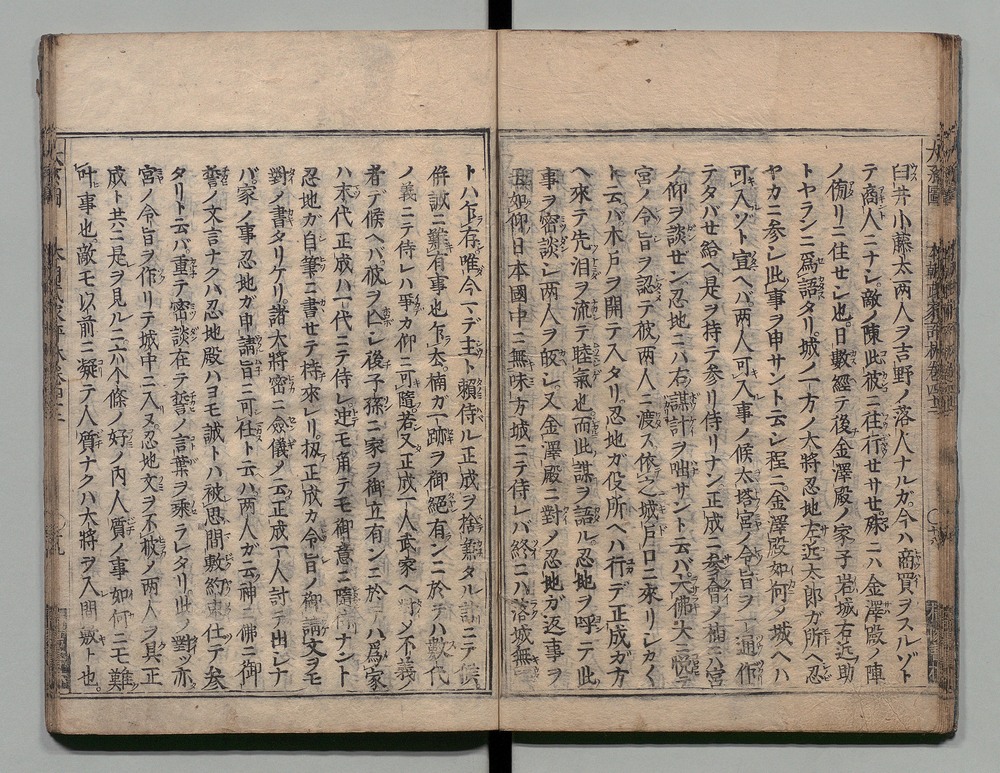 臼井小藤太両人ヲ吉野ノ落人ナルガ今ハ商買ヲスルゾト
テ商人ニナシ敵ノ陳此彼ニ往行セサセ殊ニハ金澤殿ノ陣
ノ傍リニ住セシ也日数經テ後金澤殿ノ家子岩城右近助
トヤランニ爲語タリ城ノ一方ノ大将忍地左近太郎ガ所ヘ忍
ヤカニ参レ此事ヲ申サントト云シ程ニ金澤殿如何メ城ヘハ
可入ゾト宣ヘバ両人可入事ノ候太塔宮ノ令旨ヲ一通作
テタバセ給ヘ是ヲ持テ参リ侍リナン正成ニ参會ノ補ニハ宮
ノ仰ヲ談ゼン忍地ニハ右ノ謀計ヲ咄サント云バ大佛大ニ悦テ
宮ノ令旨ヲ認テ彼両人ニ渡ス依之城戸口ニ來リシカ〱
ト云バ木戸ヲ開テ入タリ忍地ガ役所ヘハ行デ正成ガ方
ヘ來テ先泪ヲ流テ睦氣也而此謀ヲ語ル忍地ヲ呼テ此
事ヲ密談シ両人ヲ皈シ又金澤殿ニ對ノ忍地ガ返事ヲ
如仰日本國中ニ無味方城ニテ侍レバ終ニハ落城無
トハ乍存唯今マデ主ト頼侍ル正成ヲ捨ンタル計ニテ候
併誠ニ難有事也乍太楠ガ一跡ヲ御絶有ンニ於テハ數代
ノ義ニテ侍レハ爭カ仰ニ可隨若又正成一人武家ヘ對メ不義ノ
者デ候ヘバ彼ヲ亡シ後子孫ニ家ヲ御立有ンニ於テハ爲家
ハ末代正成ハ一代ニテ侍レ迚モ角テモ御意ニ隨侍ナント
忍地カ自筆ニ書セテ持來レリ扨正成カ令旨ノ御請文ヲモ
對ノ書タリケリ諸大將密ニ僉儀ノ云正成一人討テ出レナ
バ家ノ事忍地ガ申請旨ニ可仕ト云ハ両人ガ云神ニ佛ニ御
誓ノ文言ナクハ忍地殿ハヨモ誠トハ被思間敷約束仕テ参
タリト云バ重テ密談在テ誓ノ言葉ヲ乘ラレタリ此ノ對ッ亦
宮ノ令旨ヲ作リテ城中ニ入ヌ忍地文ヲ不披ノ両人ヲ具正
成ト共ニ是ヲ見ルニ六个條ノ好ノ内人質ノ事如何ニモ難
叶事也敵モ以前ニ凝テ人質ナクハ大將ヲ入間敷ト也